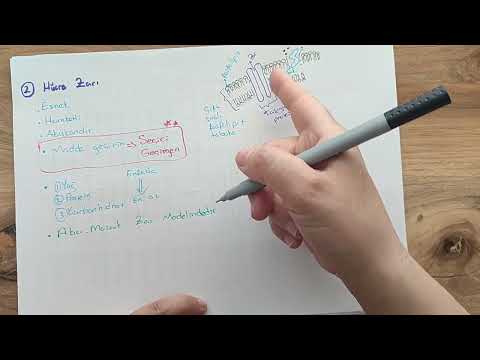 ② Hücre Zarı
- Esnek
- Hareketli
- Akışkandır
! • Madde geçirimi ⇒ Seçici Geçirgen
Çift
katlı
fosfolipit
tabaka
Fazla
• ① Yağ
② Protein
③ Karbonhidrat En az
• Akıcı-Mozaik Zar Modelindedir